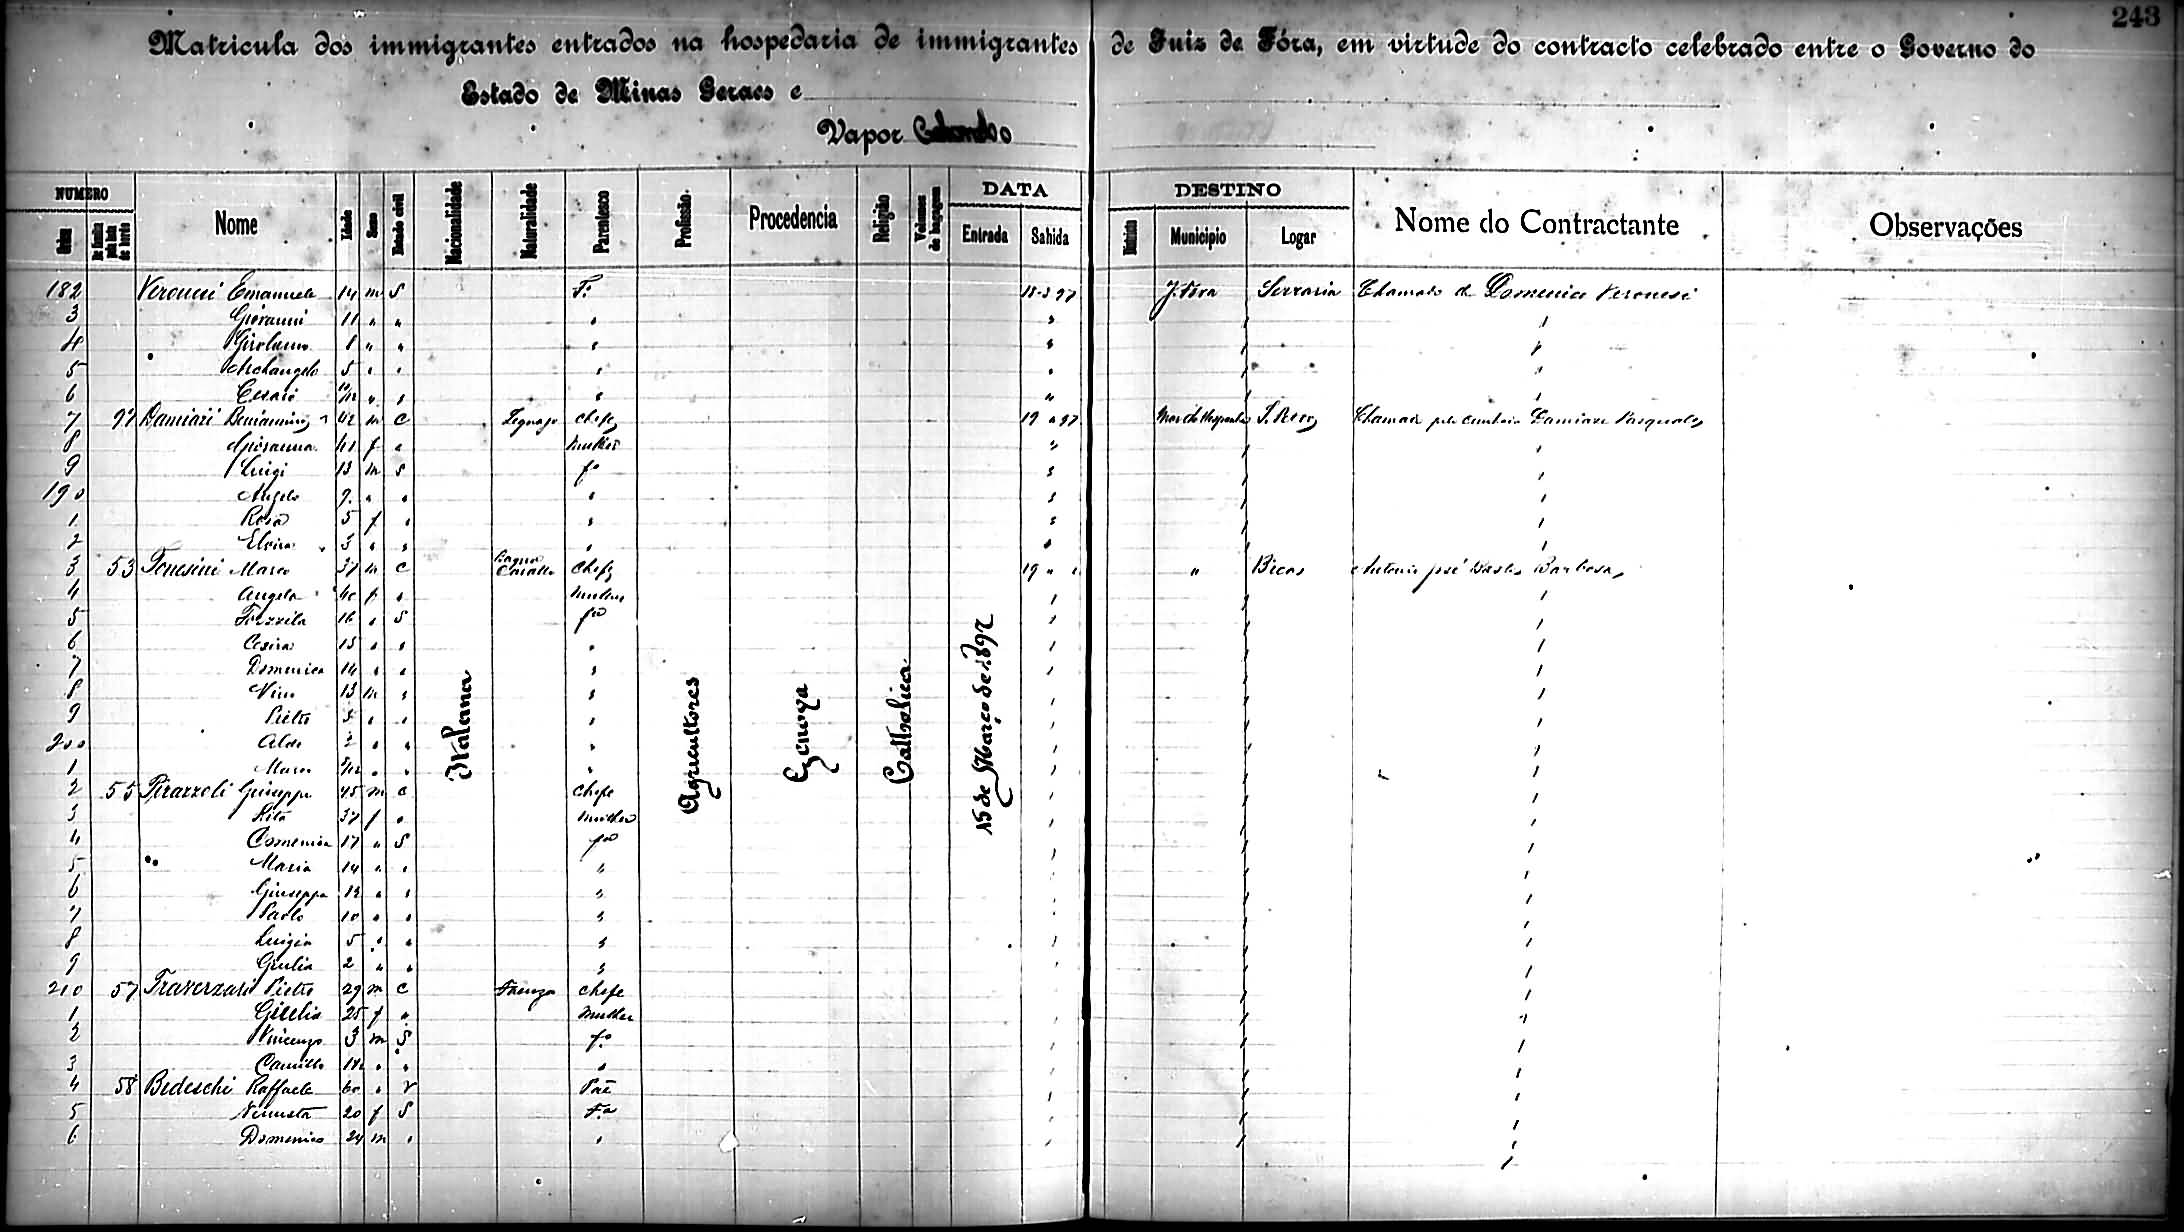 243
Matricula dos immigrantes entrados na hospedaria de immigrantes de Juiz de Fóra, em virtude do contracto celebrado entre o Governo do
Estado de Minas Geraes e
Vapor
NUMERO Nome Idade Sexo Estado civil Nacionalidade Naturalidade Parentesco Profissão Procedencia Religião Volumes de bagagem DATA Entrada Sahida DESTINO Districto Municipio Logar Nome do Contractante Observações
Italiana Agricultores Genova Catholica 15 de Março de 1897
182 Veronesi Emanuele 14 m S Fº 18-3 97 J. Fora Serraria Chamado de Domenico Veronesi
3 Giovanni 11 " " "
4 Girolamo 8 " " "
5 Archangelo 5 " " "
6 " " "
7 Damiani Beniamino 42 m C Legnago Chefe 19 " 97 Mar de Hespanha Chamado pelo Damiani Pasquale
8 Giovanna 41 f " Mulher "
9 Luigi 13 m S fº "
190 Angelo 9 " " "
1 Rosa 5 f " "
2 Elvira 3 " " "
3 53 Tonesini Marco 37 m C Bagna Cavallo Chefe 19 " " " Bicas Antonio José Bastos Barbosa
4 Angela 40 f " Mulher
5 16 " S fª
6 Cesira 15 " " "
7 Domenica 14 " " "
8 Nino 13 m " "
9 Pietro 5 " " "
200 Aldo 2 " " "
1 Marco " " "
2 55 Pirazzoli Giuseppe 45 m C Chefe
3 Rita 37 f " Mulher
4 Domenica 17 " S fª
5 Maria 14 " " "
6 Giuseppa 12 " " "
7 Paolo 10 " " "
8 Luigia 5 " " "
9 Giulia 2 " " "
210 57 Traverzari Pietro 29 m C Faenza Chefe
1 25 f " Mulher
2 Vincenzo 3 m S fº
3 Camillo " " "
4 58 Bedeschi Raffaele 60 " V Pae
5 20 f S Fª
6 Domenico 24 m " "